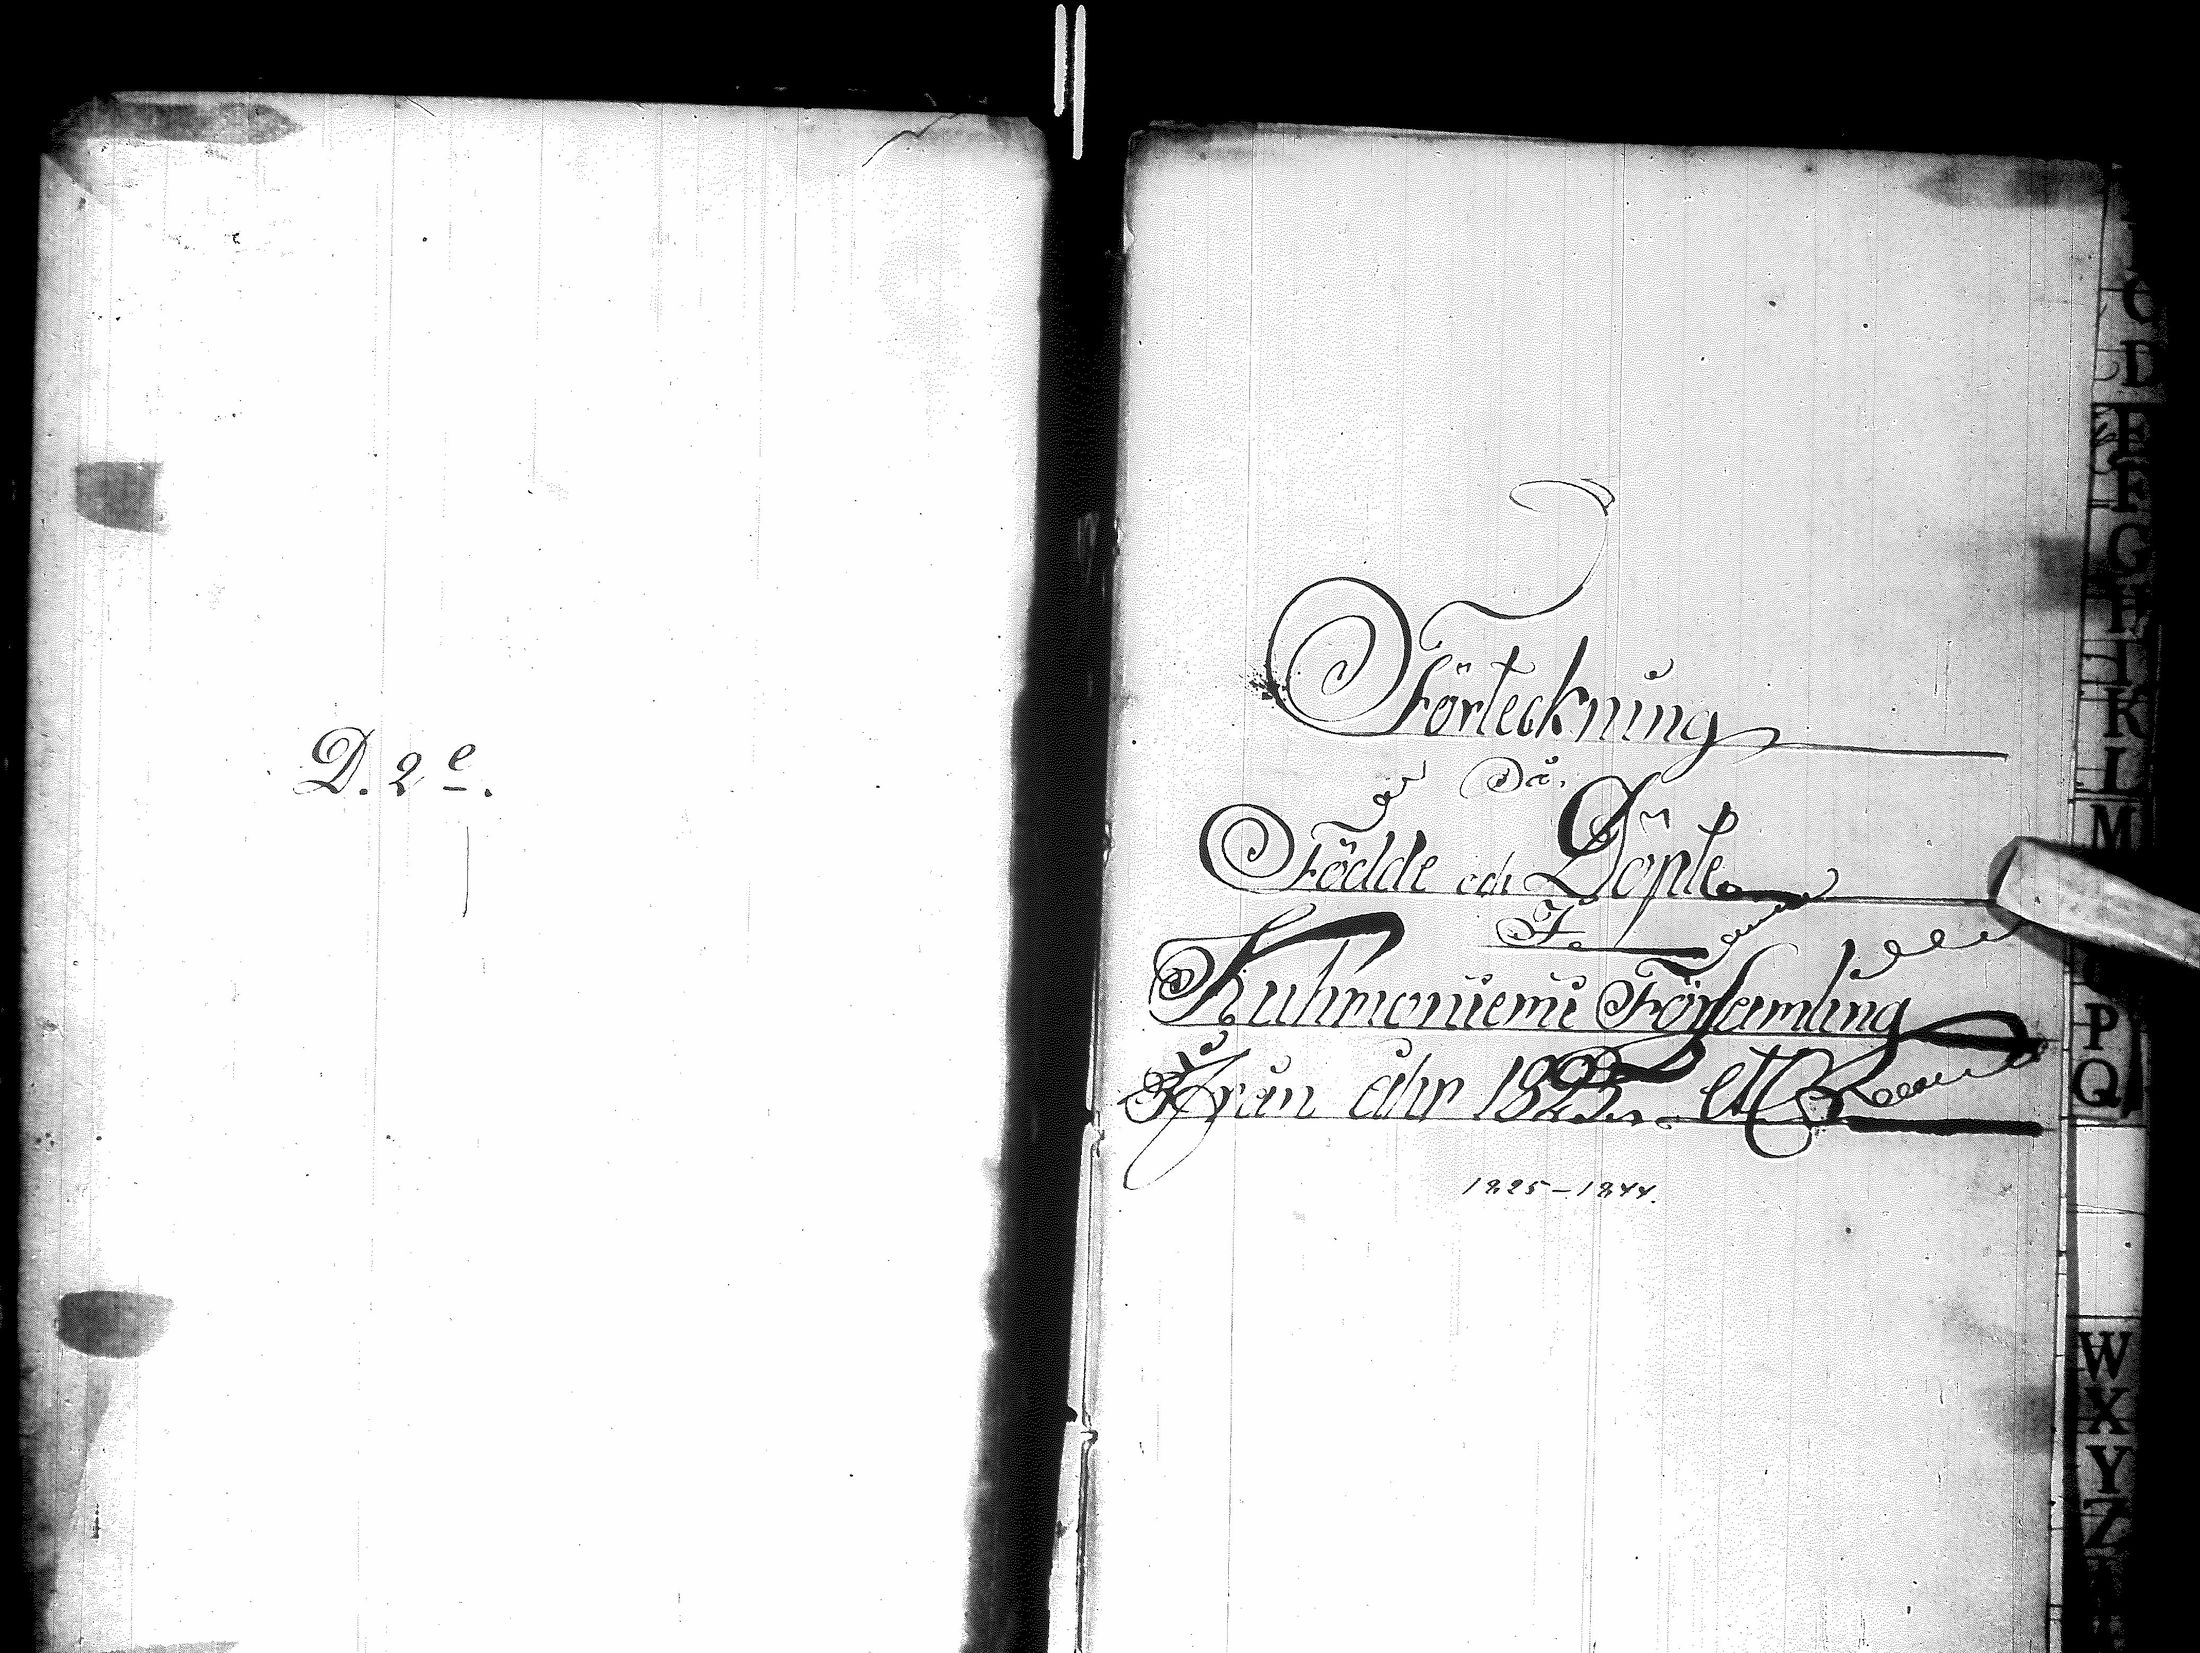 D. 2e.
Förteckning
På
Födde och Döpte
I
Kuhmoniemi Församling
Ifrån åhr 1825
1825–1844.
C
D
E
F
G
H
I
K
L
M
P
Q
W
X
Y
Z